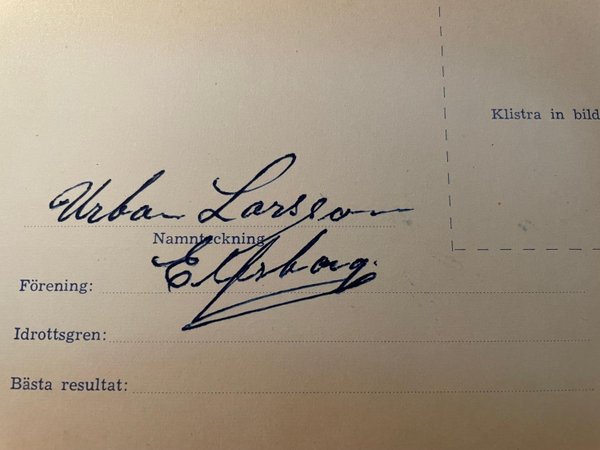 Klistra in bild
Urban Larsson
Namnteckning
Elfsborg.
Förening:
Idrottsgren:
Bästa resultat: